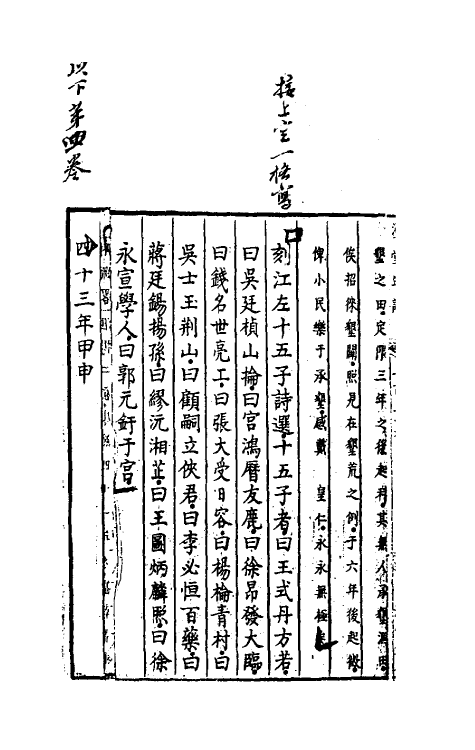 接上空一格寫
以下第四卷
墾之田定限三年之後起科其無人承墾
俟招徠墾闢照見在墾荒之例于六年後起徵
俾小民樂于承墾感戴 皇仁永永無極
刻江左十五子詩選十五子者曰王式丹方若
曰吳廷楨山掄曰宮鴻曆友鹿曰徐昂發大臨
曰錢名世亮工曰張大受日容曰楊棆青村曰
吳士玉荆山曰顧嗣立俠君曰李必恒百藥曰
蔣廷錫揚孫曰繆沅湘芷曰王圖炳麟照曰徐
永宣學人曰郭元釪于宮
四十三年甲申